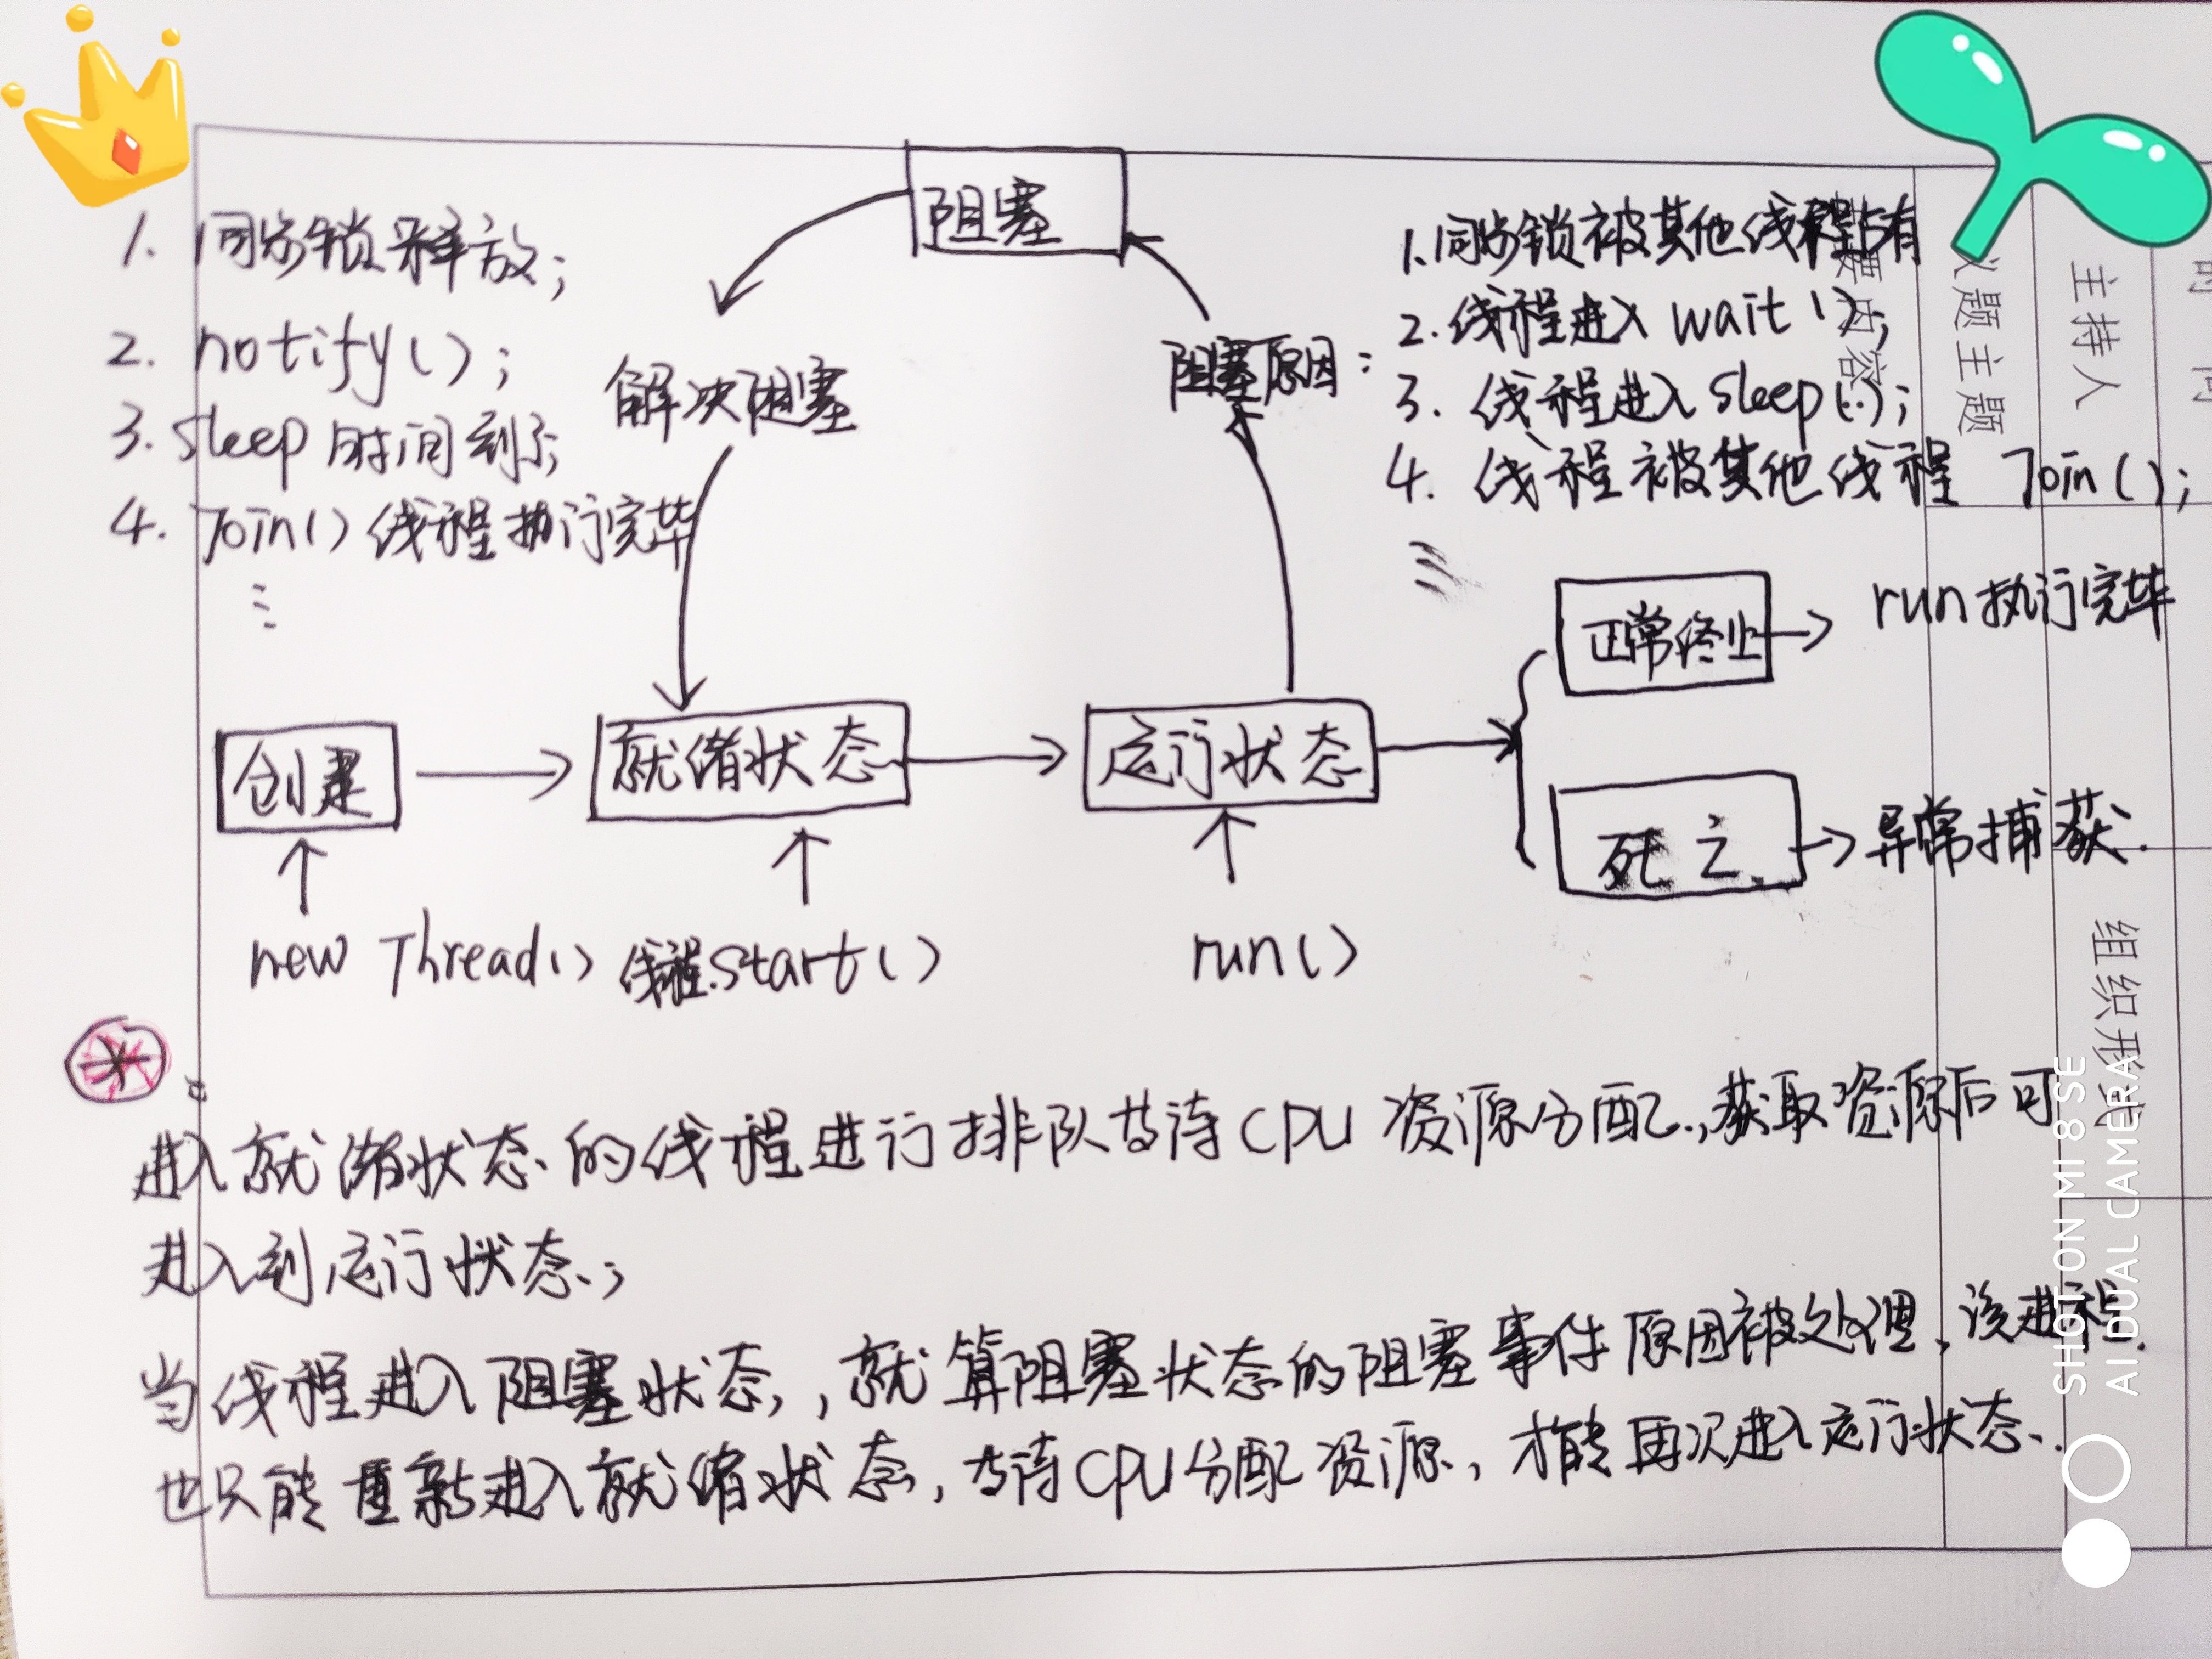 阻塞
1. 同步锁释放;
2. notify();
3. sleep时间到;
4. Join()线程执行完毕
解决阻塞
阻塞原因:
1. 同步锁被其他线程占有
2. 线程进入 wait();
3. 线程进入 sleep(..);
4. 线程被其他线程 Join();
正常终止
run执行完毕
创建
就绪状态
运行状态
死亡
异常捕获.
new Thread()
线程.start()
run()
进入就绪状态的线程进行排队等待CPU资源分配,获取资源后可
进入到运行状态;
当线程进入阻塞状态,就算阻塞状态的阻塞事件原因被处理,该进程
也只能重新进入就绪状态,等待CPU分配资源,才能再次进入运行状态.
议题主题
主持人
要内容
组织形
SHOT ON MI 8 SE
AI DUAL CAMERA